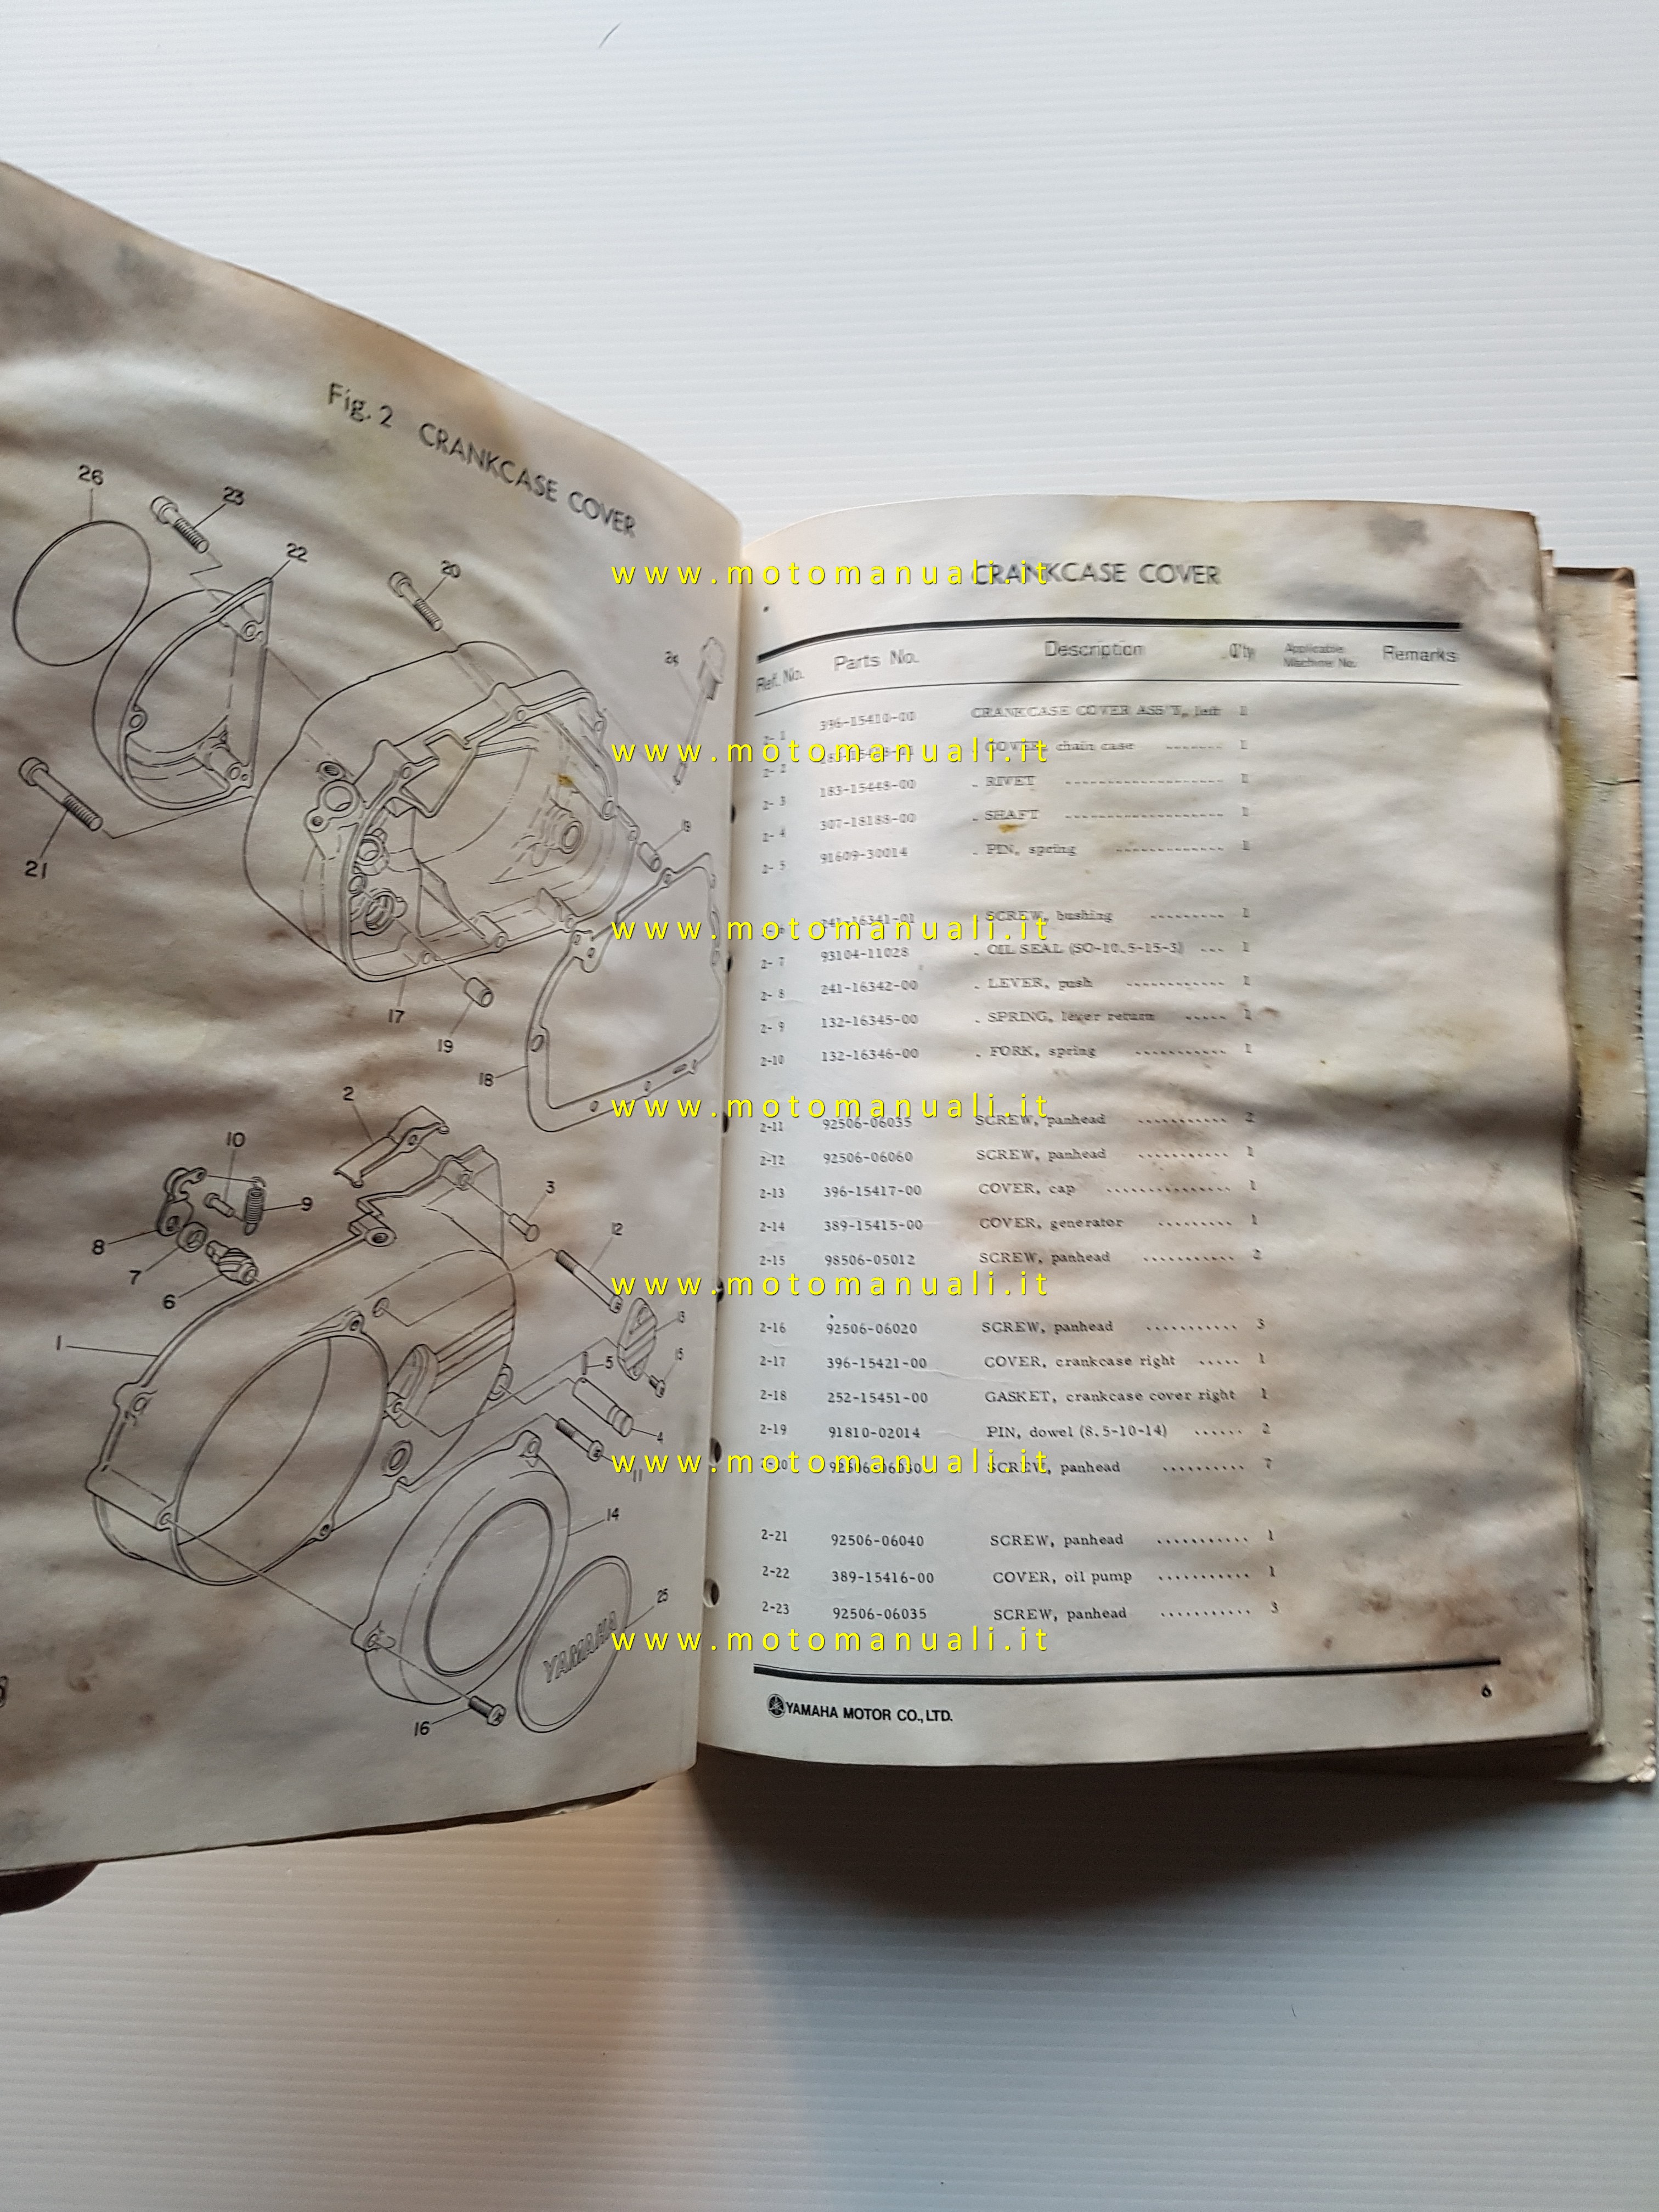 Fig. 2 CRANKCASE COVER
26
23
22
20
21
19
17
19
18
2
10
3
9
12
8
7
6
13
1
5
15
4
11
14
25
YAMAHA
16
CRANKCASE COVER
Ref. No. Parts No. Description Q'ty Applicable Machine No. Remarks
2- 1 396-15410-00 CRANKCASE COVER ASS'Y, left 1
2- 2 . COVER, chain case ....... 1
2- 3 183-15448-00 . RIVET .................... 1
2- 4 307-18188-00 . SHAFT .................... 1
2- 5 91609-30014 . PIN, spring ............. 1
241-16341-01 SCREW, bushing ......... 1
2- 7 93104-11028 . OIL SEAL (SO-10.5-15-3) ... 1
2- 8 241-16342-00 . LEVER, push ............ 1
2- 9 132-16345-00 . SPRING, lever return ..... 1
2-10 132-16346-00 . FORK, spring ........... 1
2-11 92506-06035 SCREW, panhead ........... 2
2-12 92506-06060 SCREW, panhead ........... 1
2-13 396-15417-00 COVER, cap ............... 1
2-14 389-15415-00 COVER, generator ......... 1
2-15 98506-05012 SCREW, panhead ........... 2
2-16 92506-06020 SCREW, panhead ........... 3
2-17 396-15421-00 COVER, crankcase right ..... 1
2-18 252-15451-00 GASKET, crankcase cover right 1
2-19 91810-02014 PIN, dowel (8.5-10-14) ...... 2
2-20 92506-06030 SCREW, panhead .......... 7
2-21 92506-06040 SCREW, panhead ........... 1
2-22 389-15416-00 COVER, oil pump ........... 1
2-23 92506-06035 SCREW, panhead ........... 3
YAMAHA MOTOR CO., LTD.
6
www.motomanuali.it
www.motomanuali.it
www.motomanuali.it
www.motomanuali.it
www.motomanuali.it
www.motomanuali.it
www.motomanuali.it